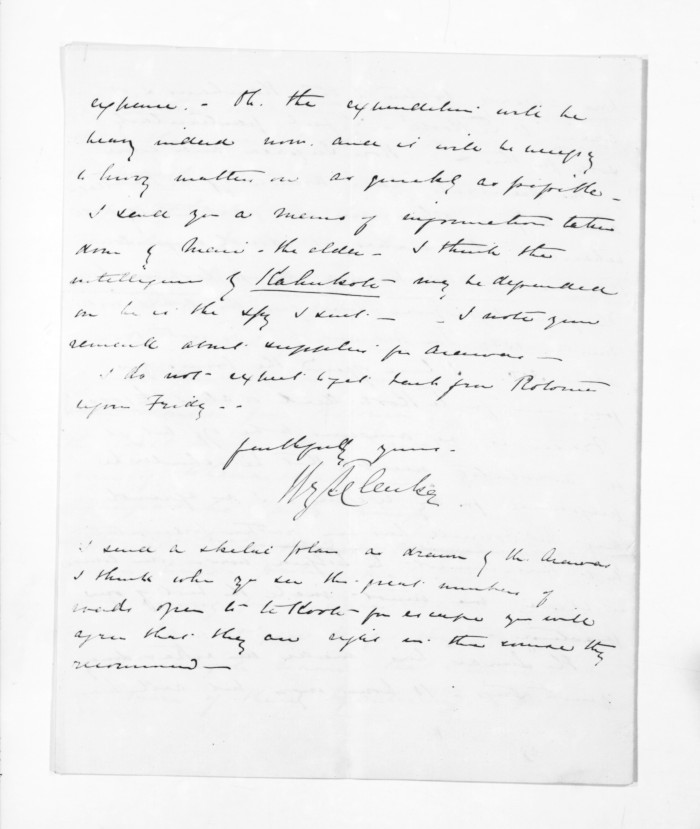 expence. - Oh. the expenditure will be
heavy indeed now. and it will be necessary
to hurry matters on as quickly as possible -
I send you a memo of information taken
down by - the elder - I think the
intelligence of may be depended
on he is the spy I sent - - I note your
remarks about supplies for Arawas -
I do not expect to get back from Rotorua
upon Friday - -
faithfully yours -
Hy T Clarke
I send a skeleton plan as drawn by the Arawas
I think when you see the great numbers of
roads open to Te Kooti for escape you will
agree that they are right in the course they
recommend -